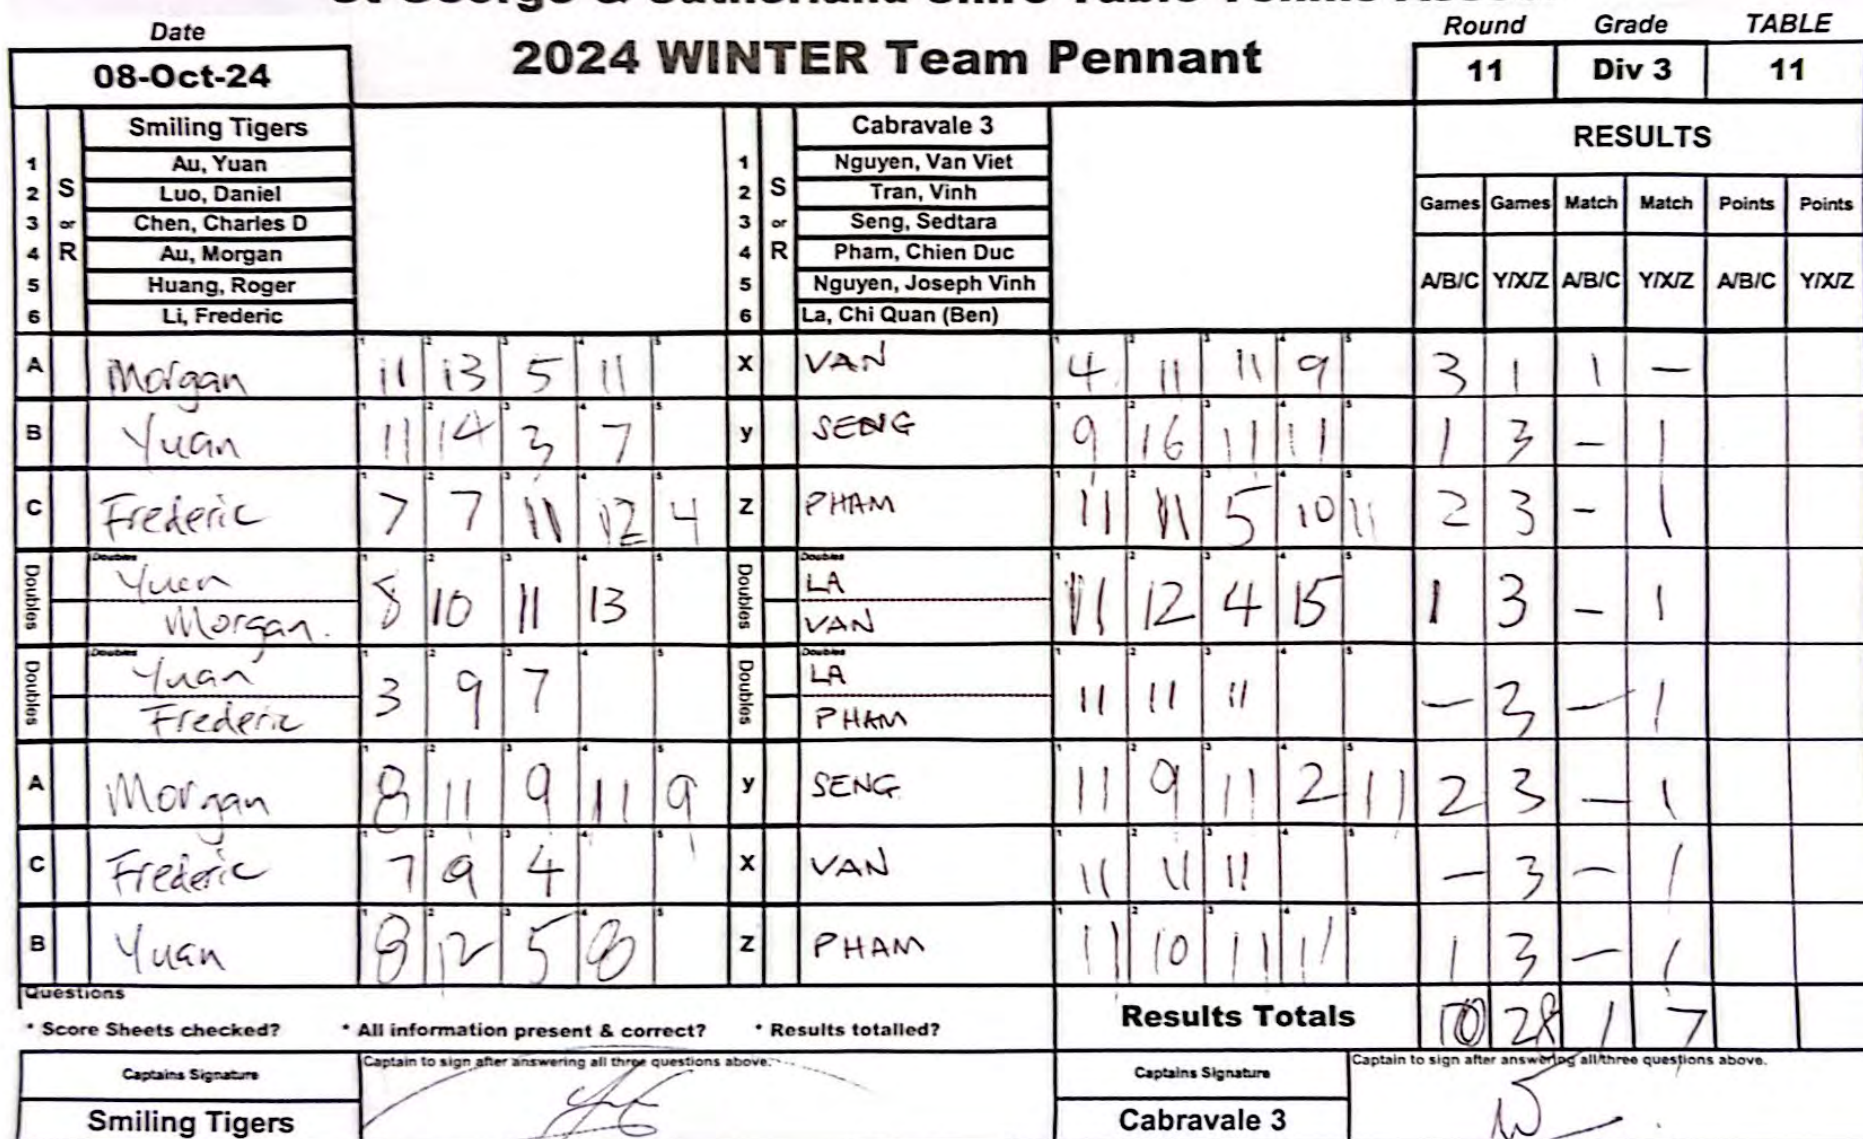 Date
08-Oct-24
2024 WINTER Team Pennant
Round Grade TABLE
11 Div 3 11
Smiling Tigers
1 Au, Yuan
2 Luo, Daniel
3 Chen, Charles D
4 Au, Morgan
5 Huang, Roger
6 Li, Frederic
S or R
Cabravale 3
1 Nguyen, Van Viet
2 Tran, Vinh
3 Seng, Sedtara
4 Pham, Chien Duc
5 Nguyen, Joseph Vinh
6 La, Chi Quan (Ben)
S or R
RESULTS
Games Games Match Match Points Points
A/B/C Y/X/Z A/B/C Y/X/Z A/B/C Y/X/Z
A Morgan 11 13 5 11 X VAN 4 11 11 9 3 1 1 -
B Yuan 11 14 3 7 y SENG 9 16 11 11 1 3 - 1
C Frederic 7 7 11 12 4 Z PHAM 11 11 5 10 11 2 3 - 1
Doubles Yuan 8 10 11 13 Doubles LA 11 12 4 15 1 3 - 1
Morgan. VAN
Doubles Yuan 3 9 7 Doubles LA 11 11 11 - 3 - 1
Frederic PHAM
A Morgan 8 11 9 11 9 y SENG 11 9 11 2 11 2 3 - 1
C Frederic 7 9 4 X VAN 11 11 11 - 3 - 1
B Yuan 8 12 5 8 Z PHAM 11 10 11 11 1 3 - 1
Questions
* Score Sheets checked? * All information present & correct? * Results totalled?
Results Totals 10 1 7
Captains Signature Captain to sign after answering all three questions above.
Smiling Tigers
Captains Signature Captain to sign after answering all three questions above.
Cabravale 3